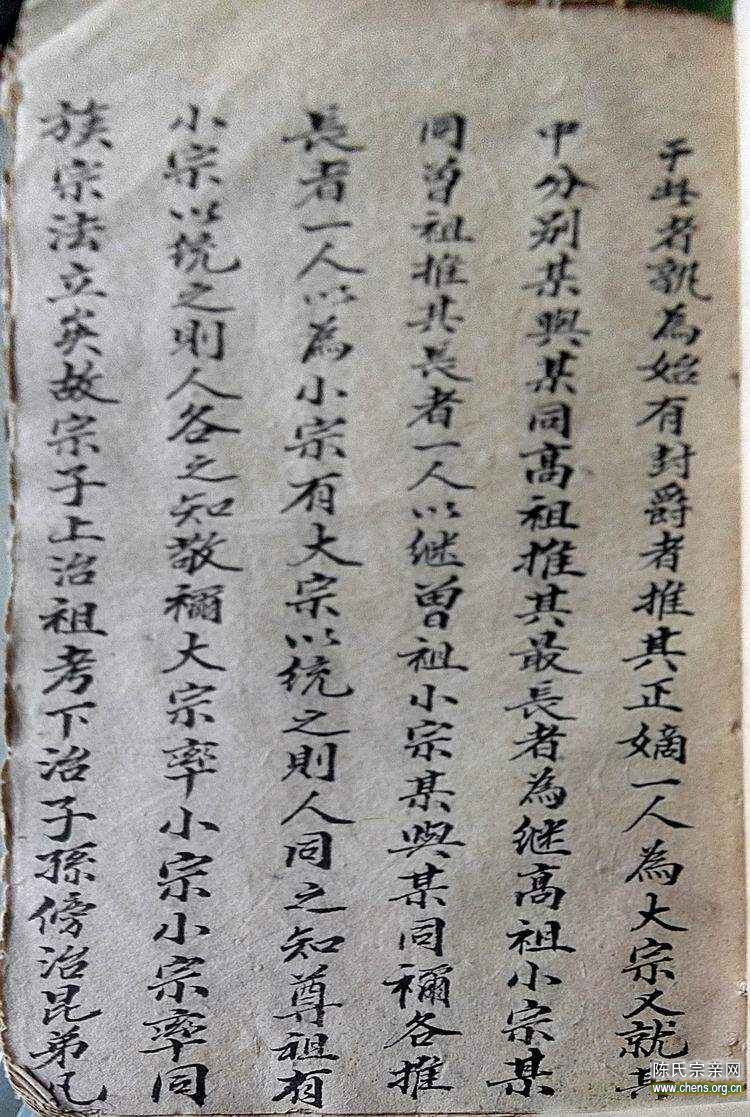 于此者孰為始有封爵者推其正嫡一人為大宗又就其
中分别某與某同髙祖推其最長者為继髙祖小宗某
同曽祖推其長者一人以继曽祖小宗某與某同禰各推
長者一人以為小宗有大宗以统之則人同之知尊祖有
小宗以统之則人各之知敬禰大宗率小宗小宗率同
族宗法立矣故宗子上治祖考下治子孫傍治昆弟凡
陈氏宗亲网
www.chens.org.cn